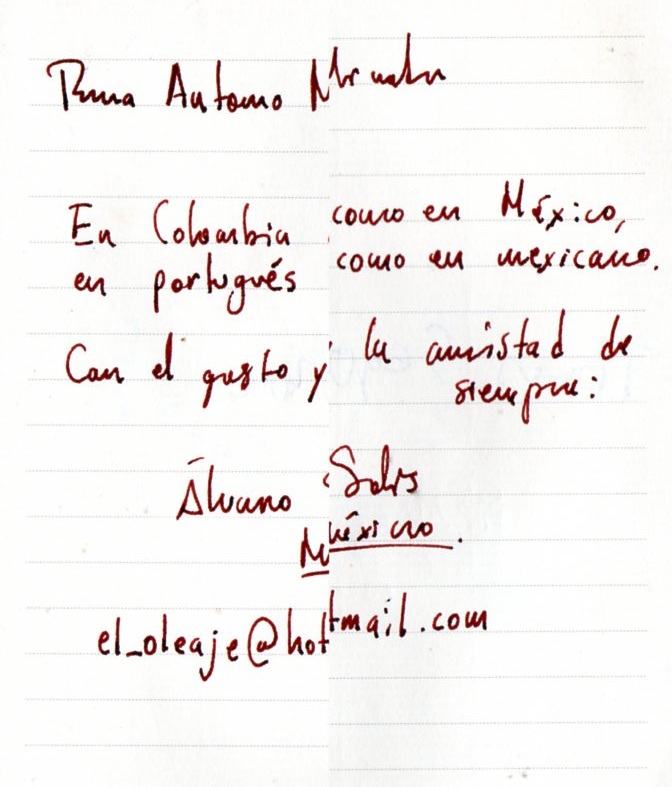 Para Antonio Miranda
En Colombia como en México,
en portugués como en mexicano.
Con el gusto y la amistad de
siempre:
Álvaro Solís
México.
el_oleaje@hotmail.com